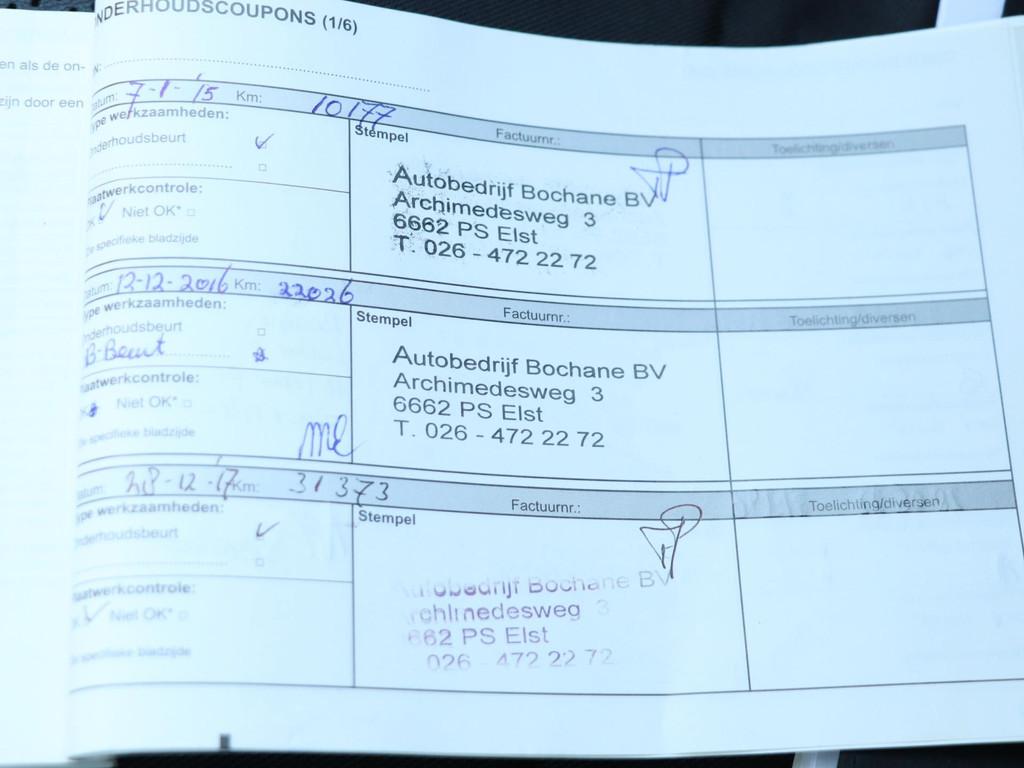 NDERHOUDSCOUPONS (1/6)
en als de on-
zijn door een
N:
atum: 7-1-'15 Km: 10177
ype werkzaamheden:
Stempel
Factuurnr.:
Toelichting/diversen
nderhoudsbeurt
Autobedrijf Bochane BV
Archimedesweg 3
6662 PS Elst
T. 026 - 472 22 72
aatwerkcontrole:
OK Niet OK*
de specifieke bladzijde
atum: 12-12-2016 Km: 22026
ype werkzaamheden:
Stempel
Factuurnr.:
Toelichting/diversen
nderhoudsbeurt
B-Beurt
Autobedrijf Bochane BV
Archimedesweg 3
6662 PS Elst
T. 026 - 472 22 72
aatwerkcontrole:
Niet OK*
de specifieke bladzijde
atum: 28-12-'17 Km: 31373
ype werkzaamheden:
Stempel
Factuurnr.:
Toelichting/diversen
nderhoudsbeurt
Autobedrijf Bochane BV
rchimedesweg 3
662 PS Elst
026 - 472 22 72
aatwerkcontrole:
K Niet OK*
de specifieke bladzijde